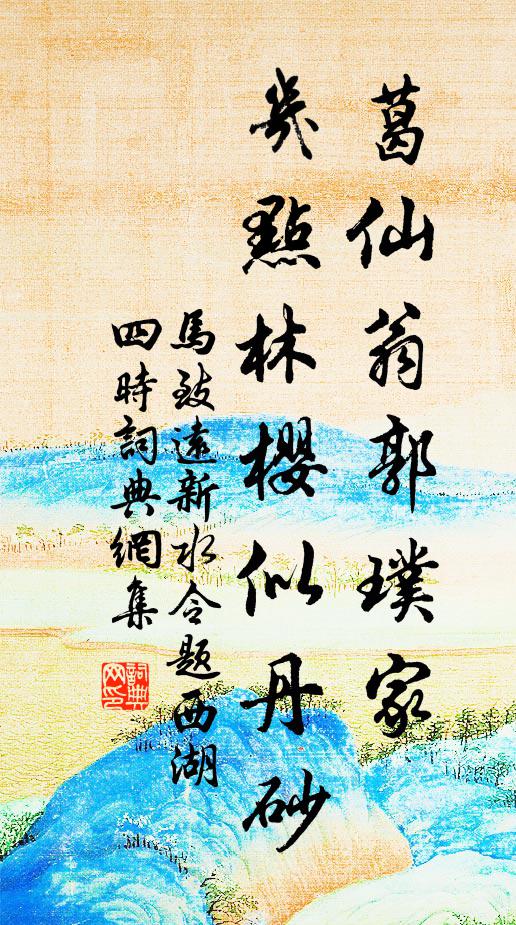 葛仙翁郭璞家
幾點林櫻似丹砂
馬致遠新水令題西湖
四時詞典網集
詞典網印